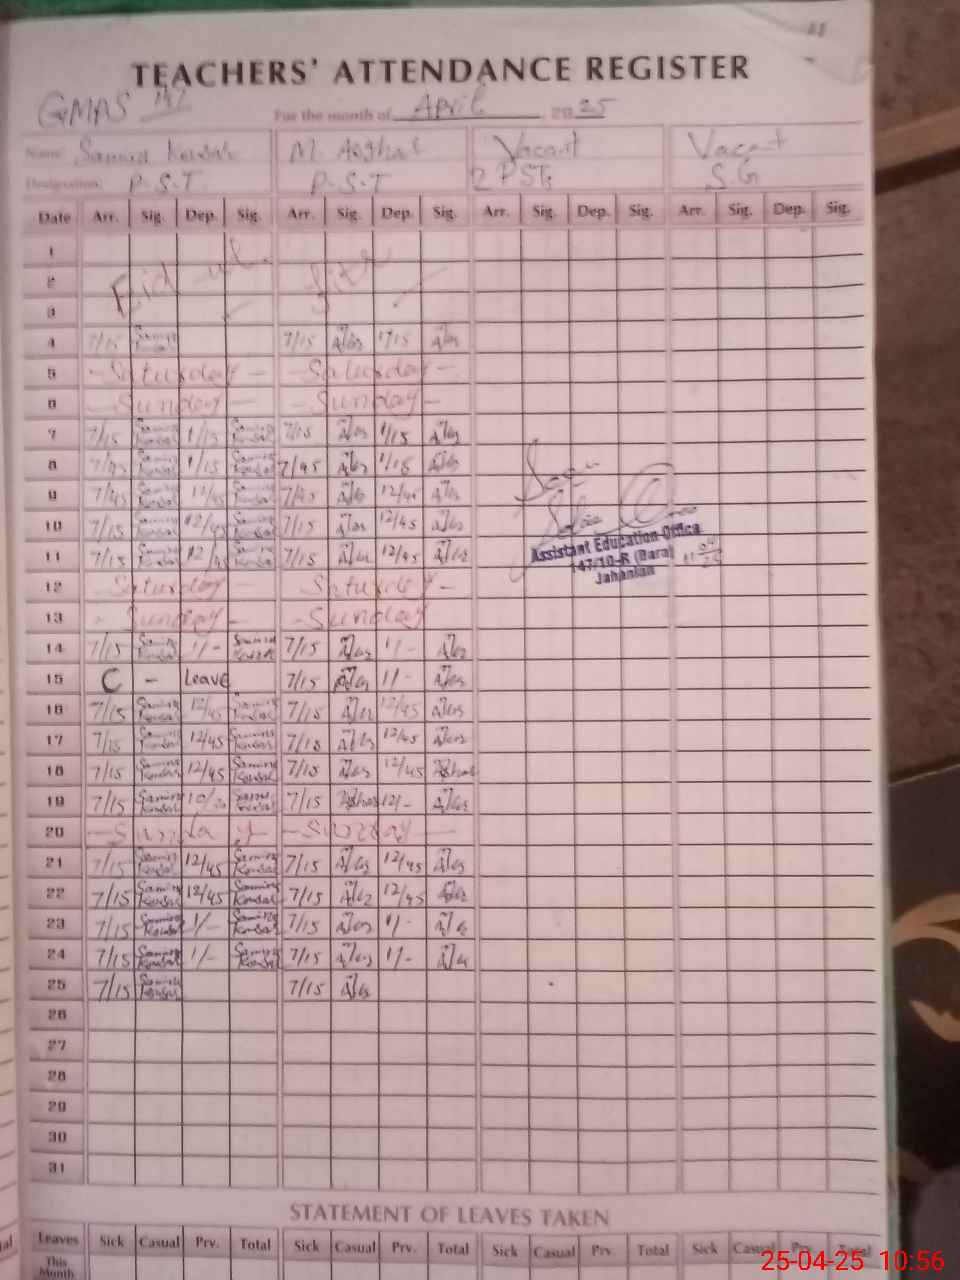 11
TEACHERS' ATTENDANCE REGISTER
GMPS
For the month of April 2025
Name: Samina Kousar M. Asghar Vacant Vacant
Designation: P.S.T P.S.T 2 PSTs S.G
Date Arr. Sig. Dep. Sig. Arr. Sig. Dep. Sig. Arr. Sig. Dep. Sig. Arr. Sig. Dep. Sig.
1
2 Eid ul fitr
3
4 7/15 Samina Kousar 7/15 1/15
5 - Saturday - - Saturday -
6 - Sunday - - Sunday -
7 7/15 Samina Kousar 1/15 Samina Kousar 7/15 1/15
8 7/45 Samina Kousar 1/15 Samina Kousar 7/45 1/15
9 7/45 Samina Kousar 12/45 Samina Kousar 7/45 12/45
10 7/15 Samina Kousar 12/45 Samina Kousar 7/15 12/45
11 7/15 Samina Kousar 12/45 Samina Kousar 7/15 12/45
Assistant Education Office
147/10-R (Bara)
Jahanian
11 04 25
12 Saturday Saturday -
13 - Sunday - - Sunday
14 7/15 Samina Kousar 1/- Samina Kousar 7/15 1/-
15 C - Leave 7/15 1/-
16 7/15 Samina Kousar 12/45 Samina Kousar 7/15 12/45
17 7/15 Samina Kousar 12/45 Samina Kousar 7/15 12/45
18 7/15 Samina Kousar 12/45 Samina Kousar 7/15 12/45
19 7/15 Samina Kousar Samina Kousar 7/15 12/-
20 - Sunday - - Sunday -
21 7/15 Samina Kousar 12/45 Samina Kousar 7/15 12/45
22 7/15 Samina Kousar 12/45 Samina Kousar 7/15 12/45
23 7/15 Samina Kousar 1/- Samina Kousar 7/15 1/-
24 7/15 Samina Kousar 1/- Samina Kousar 7/15 1/-
25 7/15 Samina Kousar 7/15
26
27
28
29
30
31
STATEMENT OF LEAVES TAKEN
Leaves Sick Casual Prv. Total Sick Casual Prv. Total Sick Casual Prv. Total Sick Casual Prv. Total
This Month
25-04-25 10:56